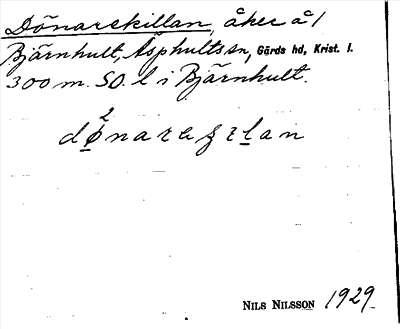 Dönarskillan, åker å 1
Bjärnhult, Äsphults sn, Gärds hd, Krist. l.
300 m. SO. l i Bjärnhult.
NILS NILSSON 1929